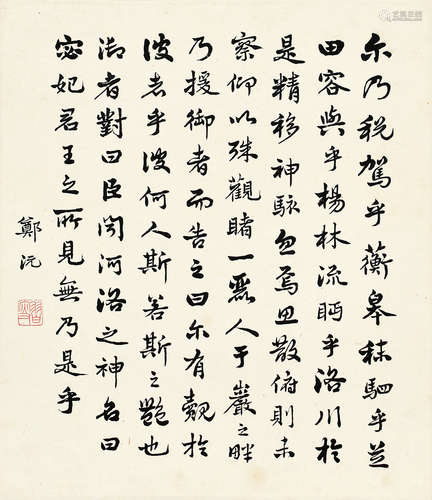 尔乃税駕乎蘅皋秣駟乎芝
田容與乎楊林流眄乎洛川於
是精移神駭忽焉思散俯則未
察仰以殊觀睹一麗人于巖之畔
乃援御者而告之曰尔有覿於
彼者乎彼何人斯若斯之艷也
御者對曰臣聞河洛之神名曰
宓妃君王之所見無乃是乎
鄭沅